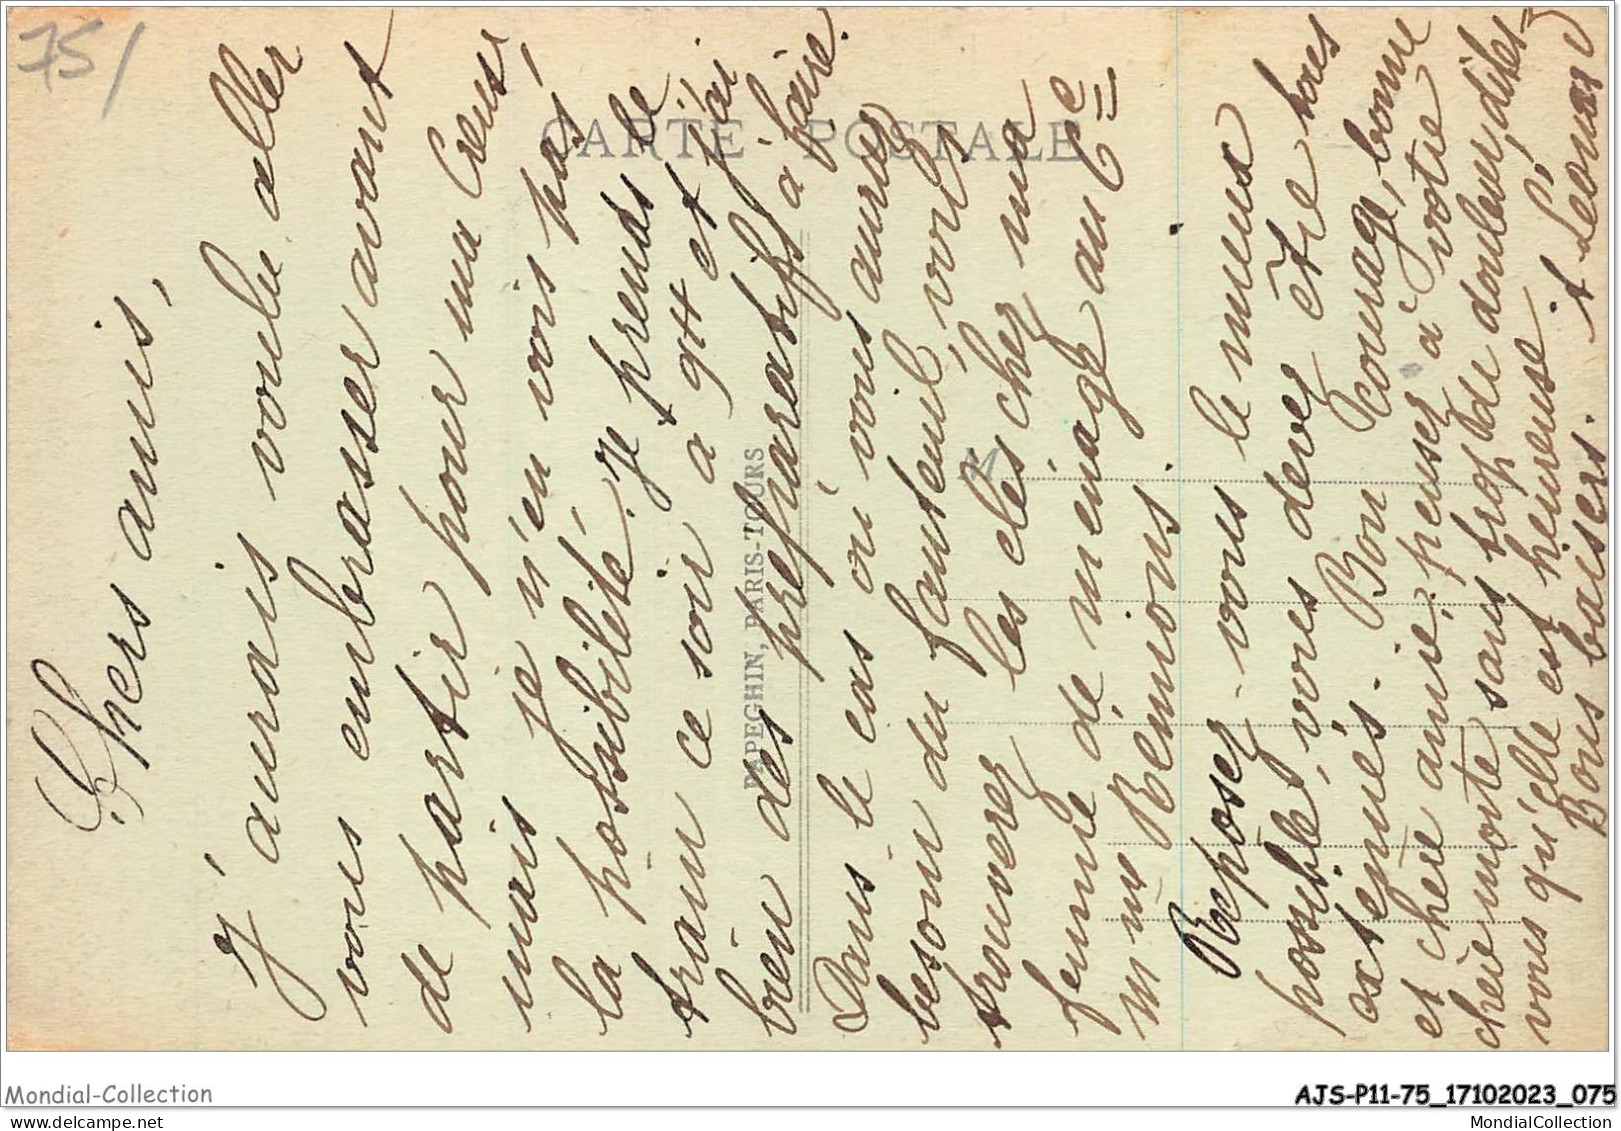 75/
CARTE POSTALE
PAPEGHIN, PARIS-TOURS
Chers amis,
J'aurais voulu aller
vous embrasser avant
de partir pour ma Creuse
mais je n'en vois pas
la possibilité. Je prends le
train ce soir à 9H et j'ai
bien des préparatifs à faire.
Dans le cas où vous auriez
besoin du fauteuil, vous
trouverez les clés chez ma
femme de ménage au 6e
Mme Rémions.
Reposez-vous le mieux
possible, vous devez être tous
exténués. Bon courage, bonne
et chère amie, pensez à votre
chère morte sans trop de douleur, dites-
vous qu'elle est heureuse.
Bons baisers. Léonard
Mondial-Collection
AJS-P11-75_17102023_075
MondialCollection.com
MondialCollection